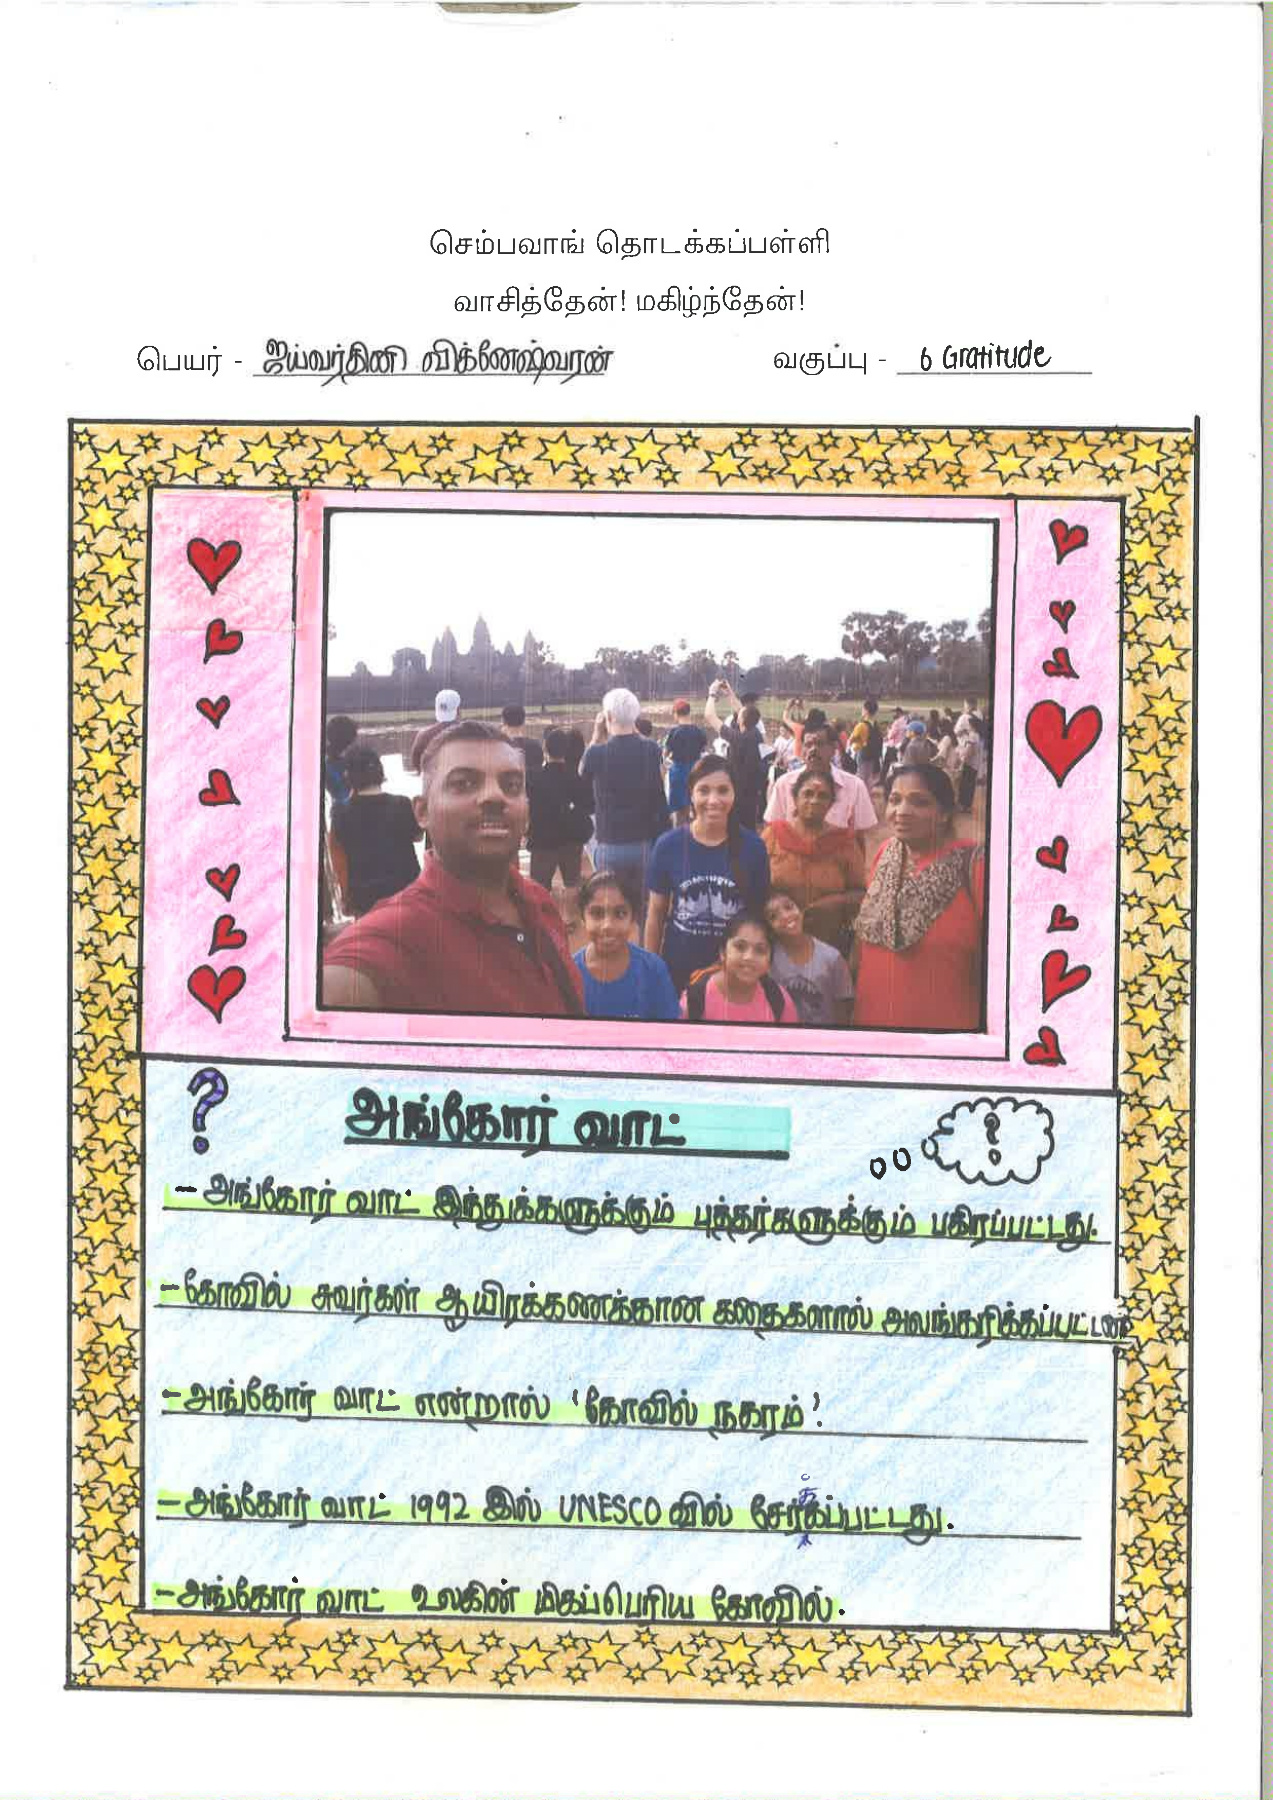 செம்பவாங் தொடக்கப்பள்ளி
வாசித்தேன்! மகிழ்ந்தேன்!
பெயர் - ஐய்வர்தினி விக்னேஷ்வரன் வகுப்பு - 6 Gratitude
? அங்கோர் வாட் ?
- அங்கோர் வாட் இந்துக்களுக்கும் புத்தர்களுக்கும் பகிரப்பட்டது.
- கோவில் சுவர்கள் ஆயிரக்கணக்கான கதைகளால் அலங்கரிக்கப்பட்டன
- அங்கோர் வாட் என்றால் 'கோவில் நகரம்'.
- அங்கோர் வாட் 1992 இல் UNESCO வில் சேர்க்கப்பட்டது.
- அங்கோர் வாட் உலகின் மிகப்பெரிய கோவில்.